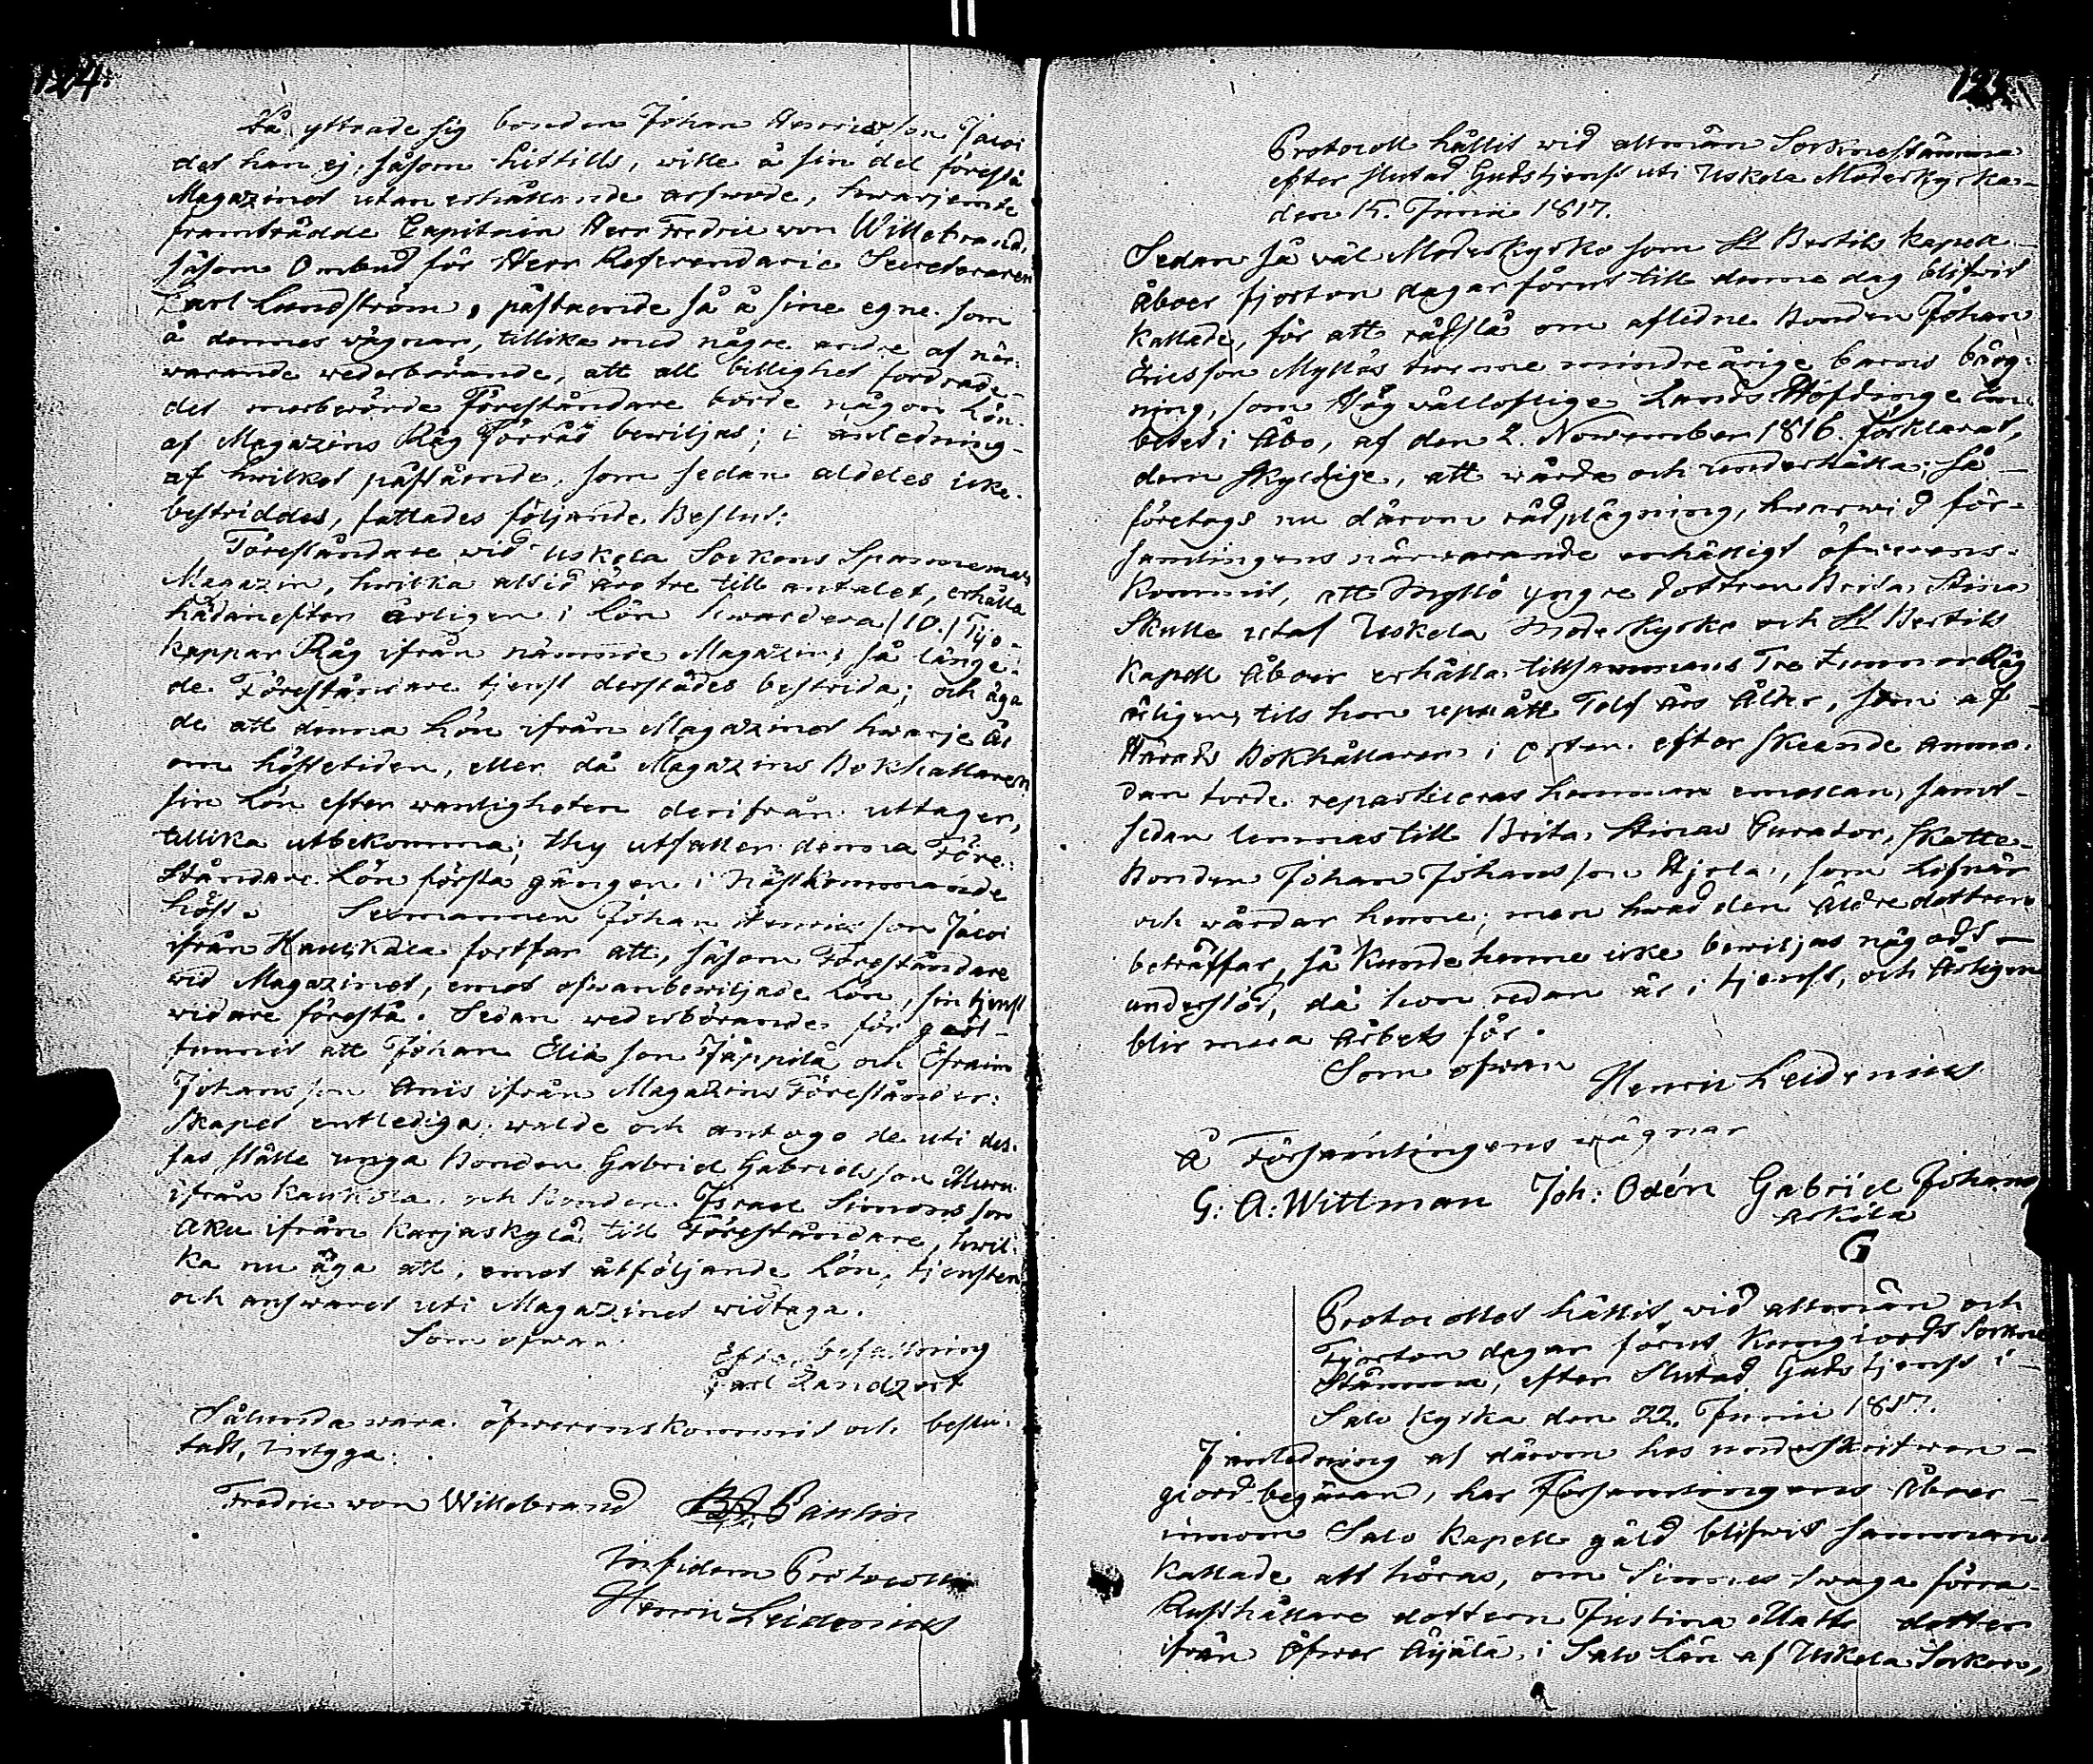 124.
Då yttrade sig bonden Johan Henricsson Jacoi
det han ej, såsom hittills, wille å sin del förestå
Magazinet utan erhållande arfwode, hwarjemte
framträdde Capitain Herr Fredric von Willebrand,
såsom Ombud för Herr Referendarie Secreteraren
Carl Lundström, påstående så å sine egne som
å dennes wägnar, tillika med någre andre af när-
warande wederbörande, att all billighet fordrade
det merberörde Föreståndare borde någon Lön
af Magazins Råg Förråd bewiljas; i anledning
af hwilket påstående, som sedan aldeles icke
bestriddes, fattades följande Beslut:
Föreståndare wid Uskela Sockens Spannemåls
Magazin, hwilka altid äro tre till antalet, erhålla
hädanefter årligen i Lön hwardera /10./ Tijo
kappar Råg ifrån nämnde Magazin, så länge
de Föreståndare tjenst derstädes bestrida; och äga
de att denna Lön ifrån Magazinet hwarje År
om hösttiden, eller då Magazins Bokhållaren
sin Lön efter wanligheten derifrån uttager,
tillika utbekomma; thy utfaller denna Före-
ståndare Lön första gången i nästkommande
höst. Sexmannen Johan Henricsson Jacoi
ifrån Kaukola fortfar att, såsom Föreståndare
wid Magazinet, emot ofwanbewiljade Lön, sin tjenst
widare förestå. Sedan wederbörande för godt
funnit att Johan Eliasson Jäppilä och Efraim
Johansson Anis ifrån Magazins Föreståndar-
skapet entlediga, walde och antogo de uti des-
sas ställe unga Bonden Gabriel Gabrielsson Muru
ifrån Kaukola och Bonden Israel Simonsson
Aku ifrån Karjaskylä till Föreståndare, hwil-
ka nu äga att, emot åtföljande Lön, tjensten
och answaret uti Magazinet widtaga.
Som ofwan
Efter befallning
Carl Landzert
Sålunda wara öfwerenskommit och beslu-
tadt, intyga:
Fredric von Willebrand Paulin
In fidem Protocolli
Henric Leidenius
125.
Protocoll hållit wid allmän Socknestämma
efter slutad Gudstjenst uti Uskela Moderkyrka
den 15. Junii 1817.
Sedan så väl Moderkyrko som St Bertils Kapell
Åboer fjorton dagar förut till denne dag blifwit
kallade, för att rådslå om afledne Bonden Johan
Ericsson Myllös twenne mindreårige barns bärg-
ning, som Högwälloflige Lands Höfdinge Em-
betet i Åbo, af den 2. November 1816. förklarat,
dem skyldige, att wårda och underhålla; så
företogs nu därom rådplägning, hwarwid för-
samlingens närwarande enhälligt öfwerens-
kommit, att Myllö yngre dottren Brita Stina
skulle utaf Uskela Moderkyrko och St Bertils
Kapell Åboer erhålla tillsammans Tre Tunnor Råg
årligen, tils hon uppnått Tolf Års Ålder, som af
Härads Bokhållaren i orten efter skeende anmo-
dan torde repartiteras hemman emellan, samt
sedan lemnas till Brita Stinas Curator, Skatte
Bonden Johan Johansson Hjola, som Lifnär
och wårdar henne; men hwad den Äldre dottren
beträffar, så kunde henne icke bewiljas någodt
understöd, då hon redan är i tjenst, och Årligen
blir mera Arbets för.
Som ofwan
Henric Leidenius
Å Församlingens wägnar
G: A: Wittman Joh: Odén Gabriel Johans
Arkila
G
Protocollet hållit wid allmän och
Fjorton dagar förut kungjord Sockne
Stämma, efter slutad Gudstjenst i
Salo Kyrka den 22. Junii 1817.
I anledning af därom hos underskrifwen
giord begäran, har Församlingens Åboer
innom Salo Kapell gäld blifwit samman-
kallade att höras, om Sinnes swaga förra
Rusthållare dottern Justina Matts dotter
ifrån Öfwer Äijälä i Salo Län af Uskela Socken,